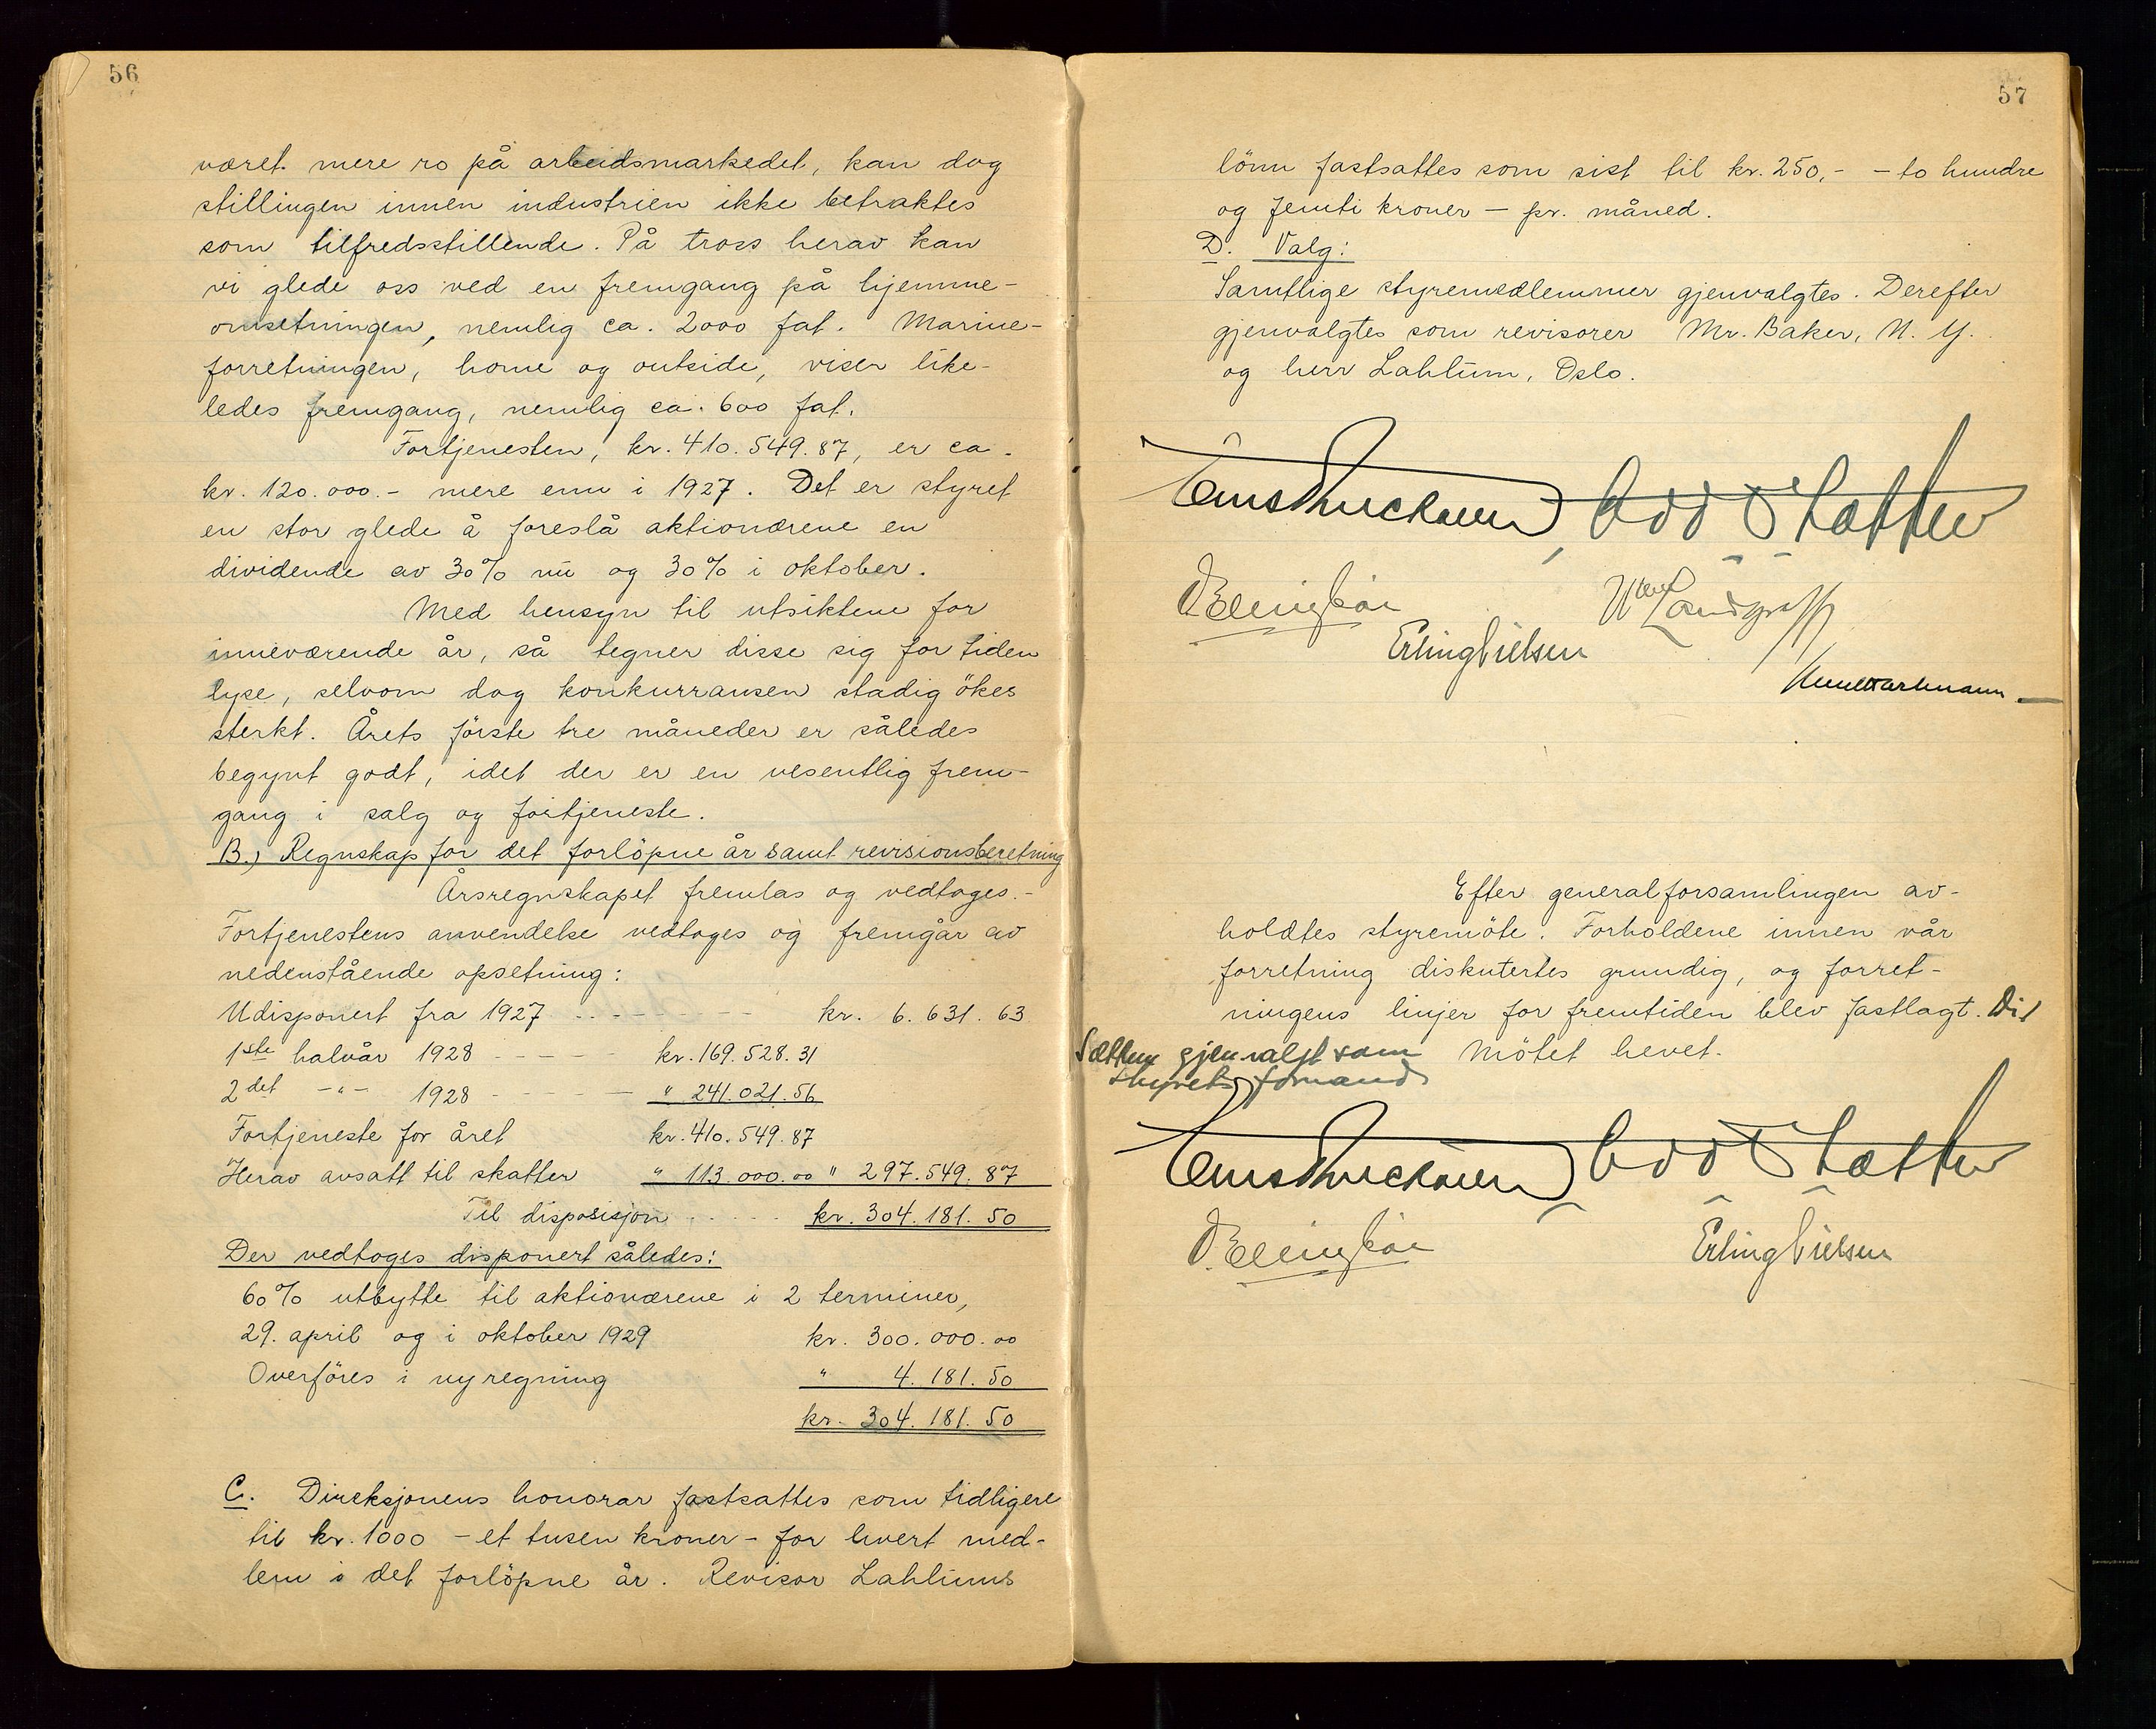 56
været mere ro på arbeidsmarkedet, kan dog
stillingen innen industrien ikke betraktes
som tilfredsstillende. På tross herav kan
vi glede oss ved en fremgang på hjemme-
omsetningen, nemlig ca. 2000 fat. Marine-
forretningen, home og outside, viser like-
ledes fremgang, nemlig ca. 600 fat.
Fortjenesten, kr. 410.549.87, er ca.
kr. 120.000.- mere enn i 1927. Det er styret
en stor glede å foreslå aktionærene en
dividende av 30% nu og 30% i oktober.
Med hensyn til utsiktene for
inneværende år, så tegner disse sig for tiden
lyse, selvom dog konkurransen stadig ökes
sterkt. Årets förste tre måneder er således
begynt godt, idet der er en vesentlig frem-
gang i salg og fortjeneste.
B.) Regnskap for det forlöpne år samt revisionsberetning
Årsregnskapet fremlas og vedtoges.-
Fortjenestens anvendelse vedtoges og fremgår av
nedenstående opsetning:
Udisponert fra 1927 - - - - - kr. 6.631.63
1ste halvår 1928 - - - - kr. 169.528.31
2det -"- 1928 - - - - - " 241.021.56
Fortjeneste for året kr. 410.549.87
Herav avsatt til skatter " 113.000.00 " 297.549.87
Til disposisjon . . . . kr. 304.181.50
Der vedtoges disponert således:
60% utbytte til aktionærene i 2 terminer,
29. april og i oktober 1929 kr. 300.000.00
Overföres i ny regning " 4.181.50
kr. 304.181.50
C. Direksjonens honorar fastsattes som tidligere
til kr. 1000 - et tusen kroner - for hvert med-
lem i det forlöpne år. Revisor Lahlums
57
lönn fastsattes som sist til kr. 250,- - to hundre
og femti kroner - pr. måned.
D. Valg:
Samtlige styremedlemmer gjenvalgtes. Derefter
gjenvalgtes som revisorer Mr. Baker, N.Y.
og herr Lahlum, Oslo.
Odd Sættem
Wm Landgraff
Erling Nielsen
Efter generalforsamlingen av-
holdtes styremöte. Forholdene innen vår
forretning diskutertes grundig, og forret-
ningens linjer for fremtiden blev fastlagt. Dir
Sættem gjenvalgt som Mötet hevet.
styrets formand
Odd Sættem
Erling Nielsen